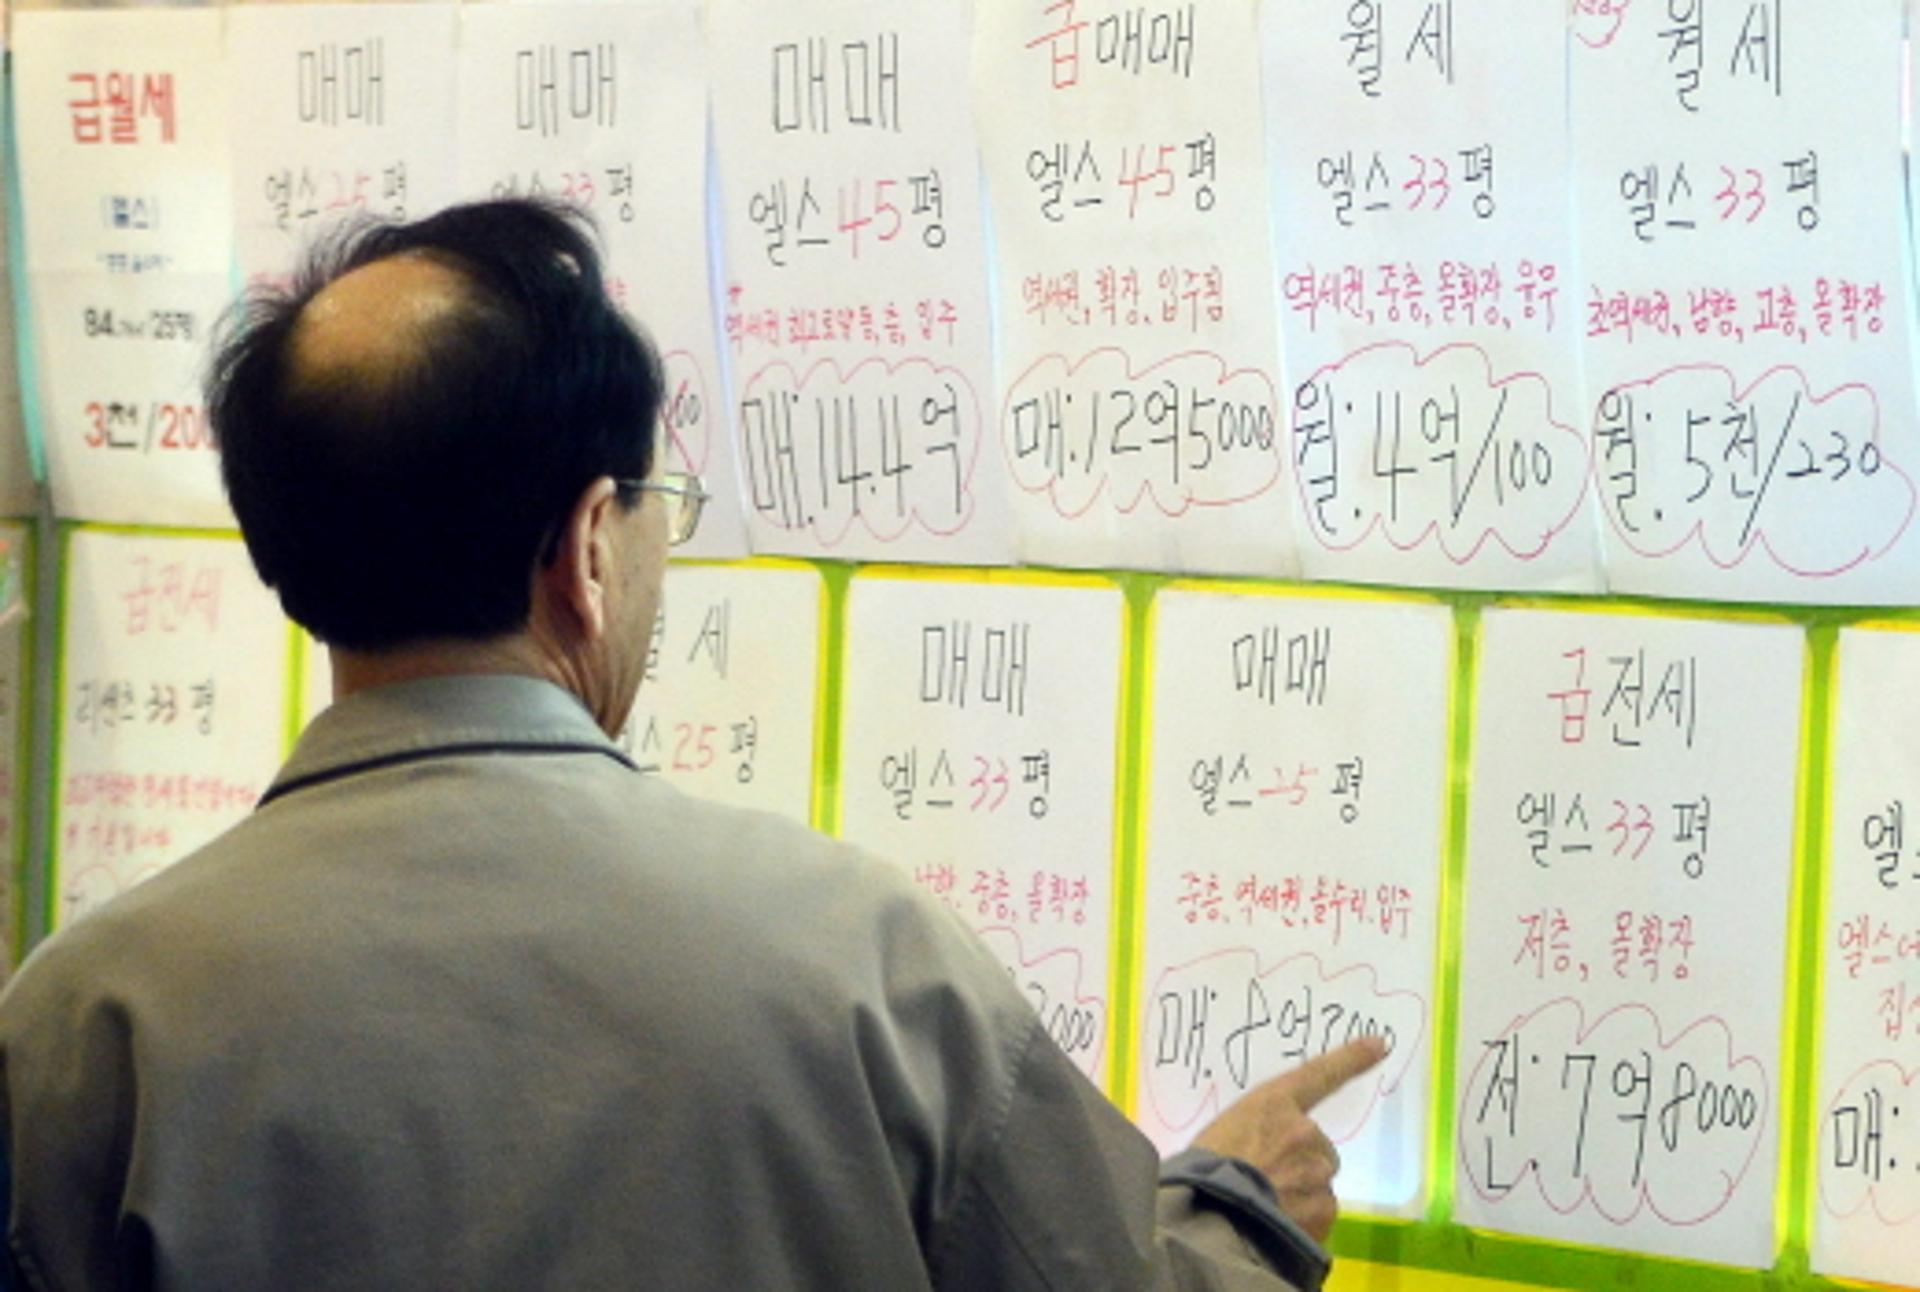 급월세
84.㎡/25평
3천/200
매매
엘스 25평
매매
엘스 33평
매매
엘스 45평
역세권 최고로얄동,층, 입주
매:14.4억
급매매
엘스 45평
역세권, 확장, 입주됨
매:12억5000
월세
엘스 33평
역세권, 중층, 올확장, 융무
월: 4억/100
월세
엘스 33평
초역세권, 남향, 고층, 올확장
월: 5천/230
급전세
리센츠 33평
세
스 25평
매매
엘스 33평
남향, 중층, 올확장
000
매매
엘스 25평
중층, 역세권, 올수리, 입주
매: 8억3000
급전세
엘스 33평
저층, 올확장
전: 7억8000
엘스
매: